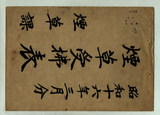 昭和十六年三月分
煙草受拂表
煙草課